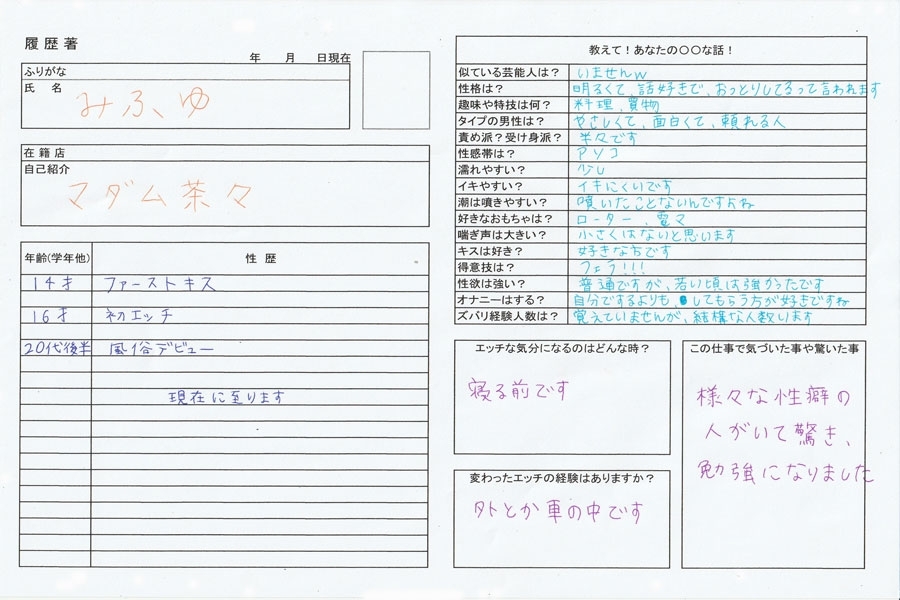 履歴著
年 月 日現在
ふりがな
氏 名
みふゆ
在籍店
自己紹介
マダム茶々
年齢(学年他) 性 歴
14才 ファーストキス
16才 初エッチ
20代後半 風俗デビュー
現在に至ります
教えて!あなたの〇〇な話!
似ている芸能人は? いませんw
性格は? 明るくて、話好きで、おっとりしてるって言われます
趣味や特技は何? 料理、買物
タイプの男性は? やさしくて、面白くて、頼れる人
責め派?受け身派? 半々です
性感帯は? アソコ
濡れやすい? 少し
イキやすい? イキにくいです
潮は噴きやすい? 噴いたことないんですよね
好きなおもちゃは? ローター、電マ
喘ぎ声は大きい? 小さくはないと思います
キスは好き? 好きな方です
得意技は? フェラ!!!
性欲は強い? 普通ですが、若い頃は強かったです
オナニーはする? 自分でするよりも、してもらう方が好きですね
ズバリ経験人数は? 覚えていませんが、結構な人数います
エッチな気分になるのはどんな時?
寝る前です
変わったエッチの経験はありますか?
外とか車の中です
この仕事で気づいた事や驚いた事
様々な性癖の
人がいて驚き、
勉強になりました